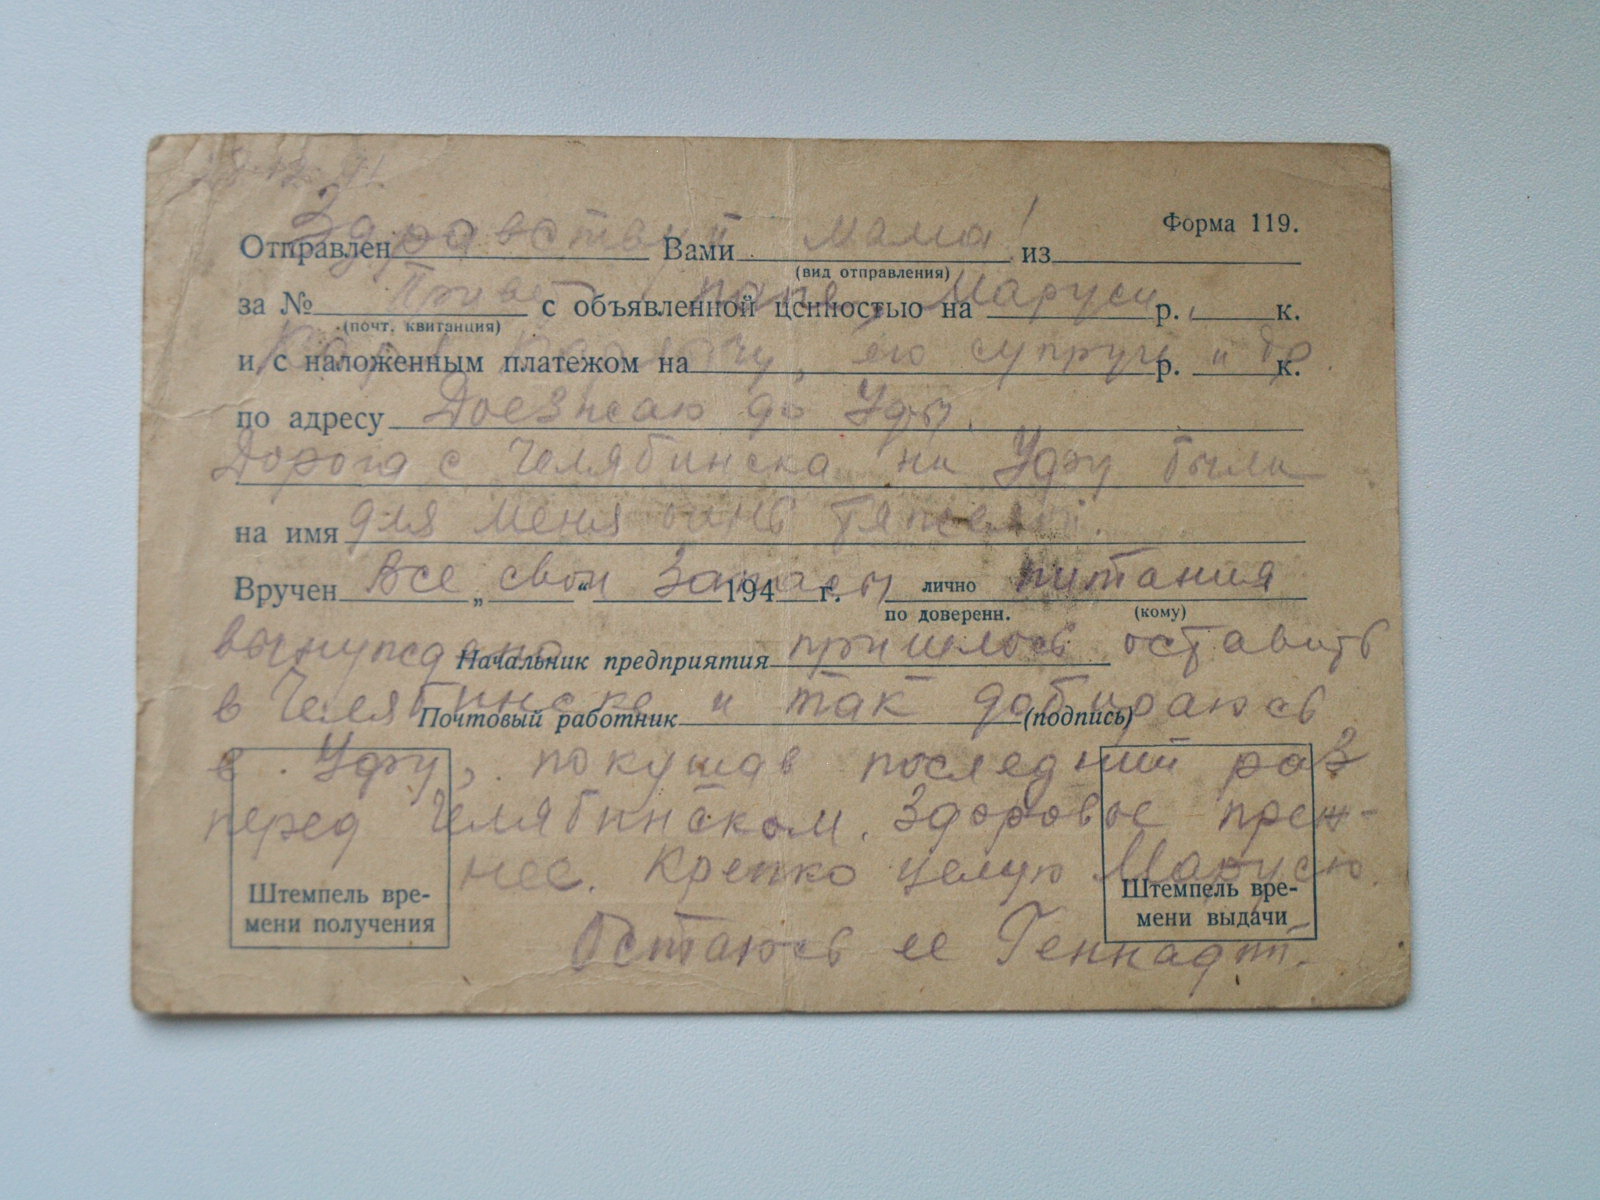 Здравствуй мама!
Форма 119.
Отправлен Вами из
(вид отправления)
Привет папе, Маруси,
за № с объявленной ценностью на р. к.
(почт. квитанция)
его супруге и др
и с наложенным платежом на р. к.
по адресу Доезжаю до Уфы.
Дорога с Челябинска на Уфу была
на имя для меня очень тяжелой.
Все свои запасы питания
Вручен „ “ 194 г. лично
по доверенн. (кому)
вынуждено пришлось оставить
Начальник предприятия
в Челябинске и так добираюсь
Почтовый работник (подпись)
в Уфу, покушав последний раз
перед Челябинском. Здоровье преж-
нее. Крепко целую Марусю.
Штемпель вре-
мени получения
Штемпель вре-
мени выдачи
Остаюсь ее Геннадий.